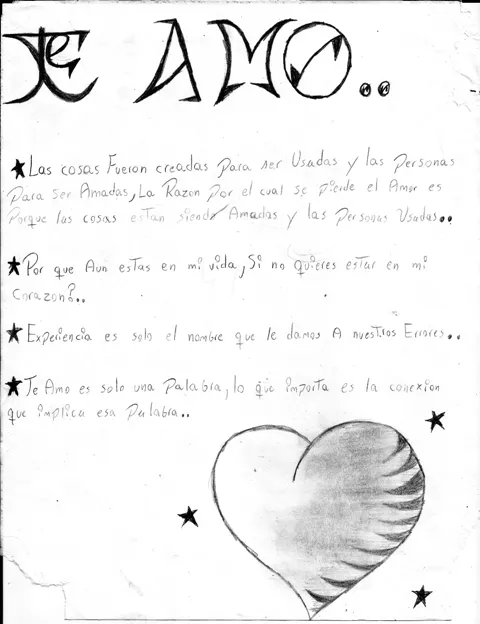 TE AMO..
★Las cosas Fueron creadas para ser Usadas y las personas
para ser Amadas, La Razon por el cual se pierde el Amor es
Porque las cosas estan siendo Amadas y las Personas Usadas..
★Por que Aun estas en mi vida, Si no quieres estar en mi
Corazon?..
★Experiencia es solo el nombre que le damos A nuestros Errores..
★Te Amo es solo una palabra, lo que importa es la conexion
que implica esa palabra..